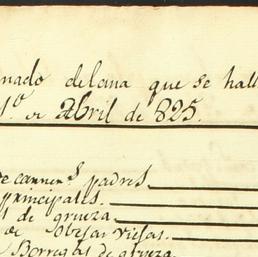 nado delana que se hall
1.º de Abril de 825.
de carner.s padres
principalls.
s de grueza
de Obejas Viejas.
Borregas de grueza